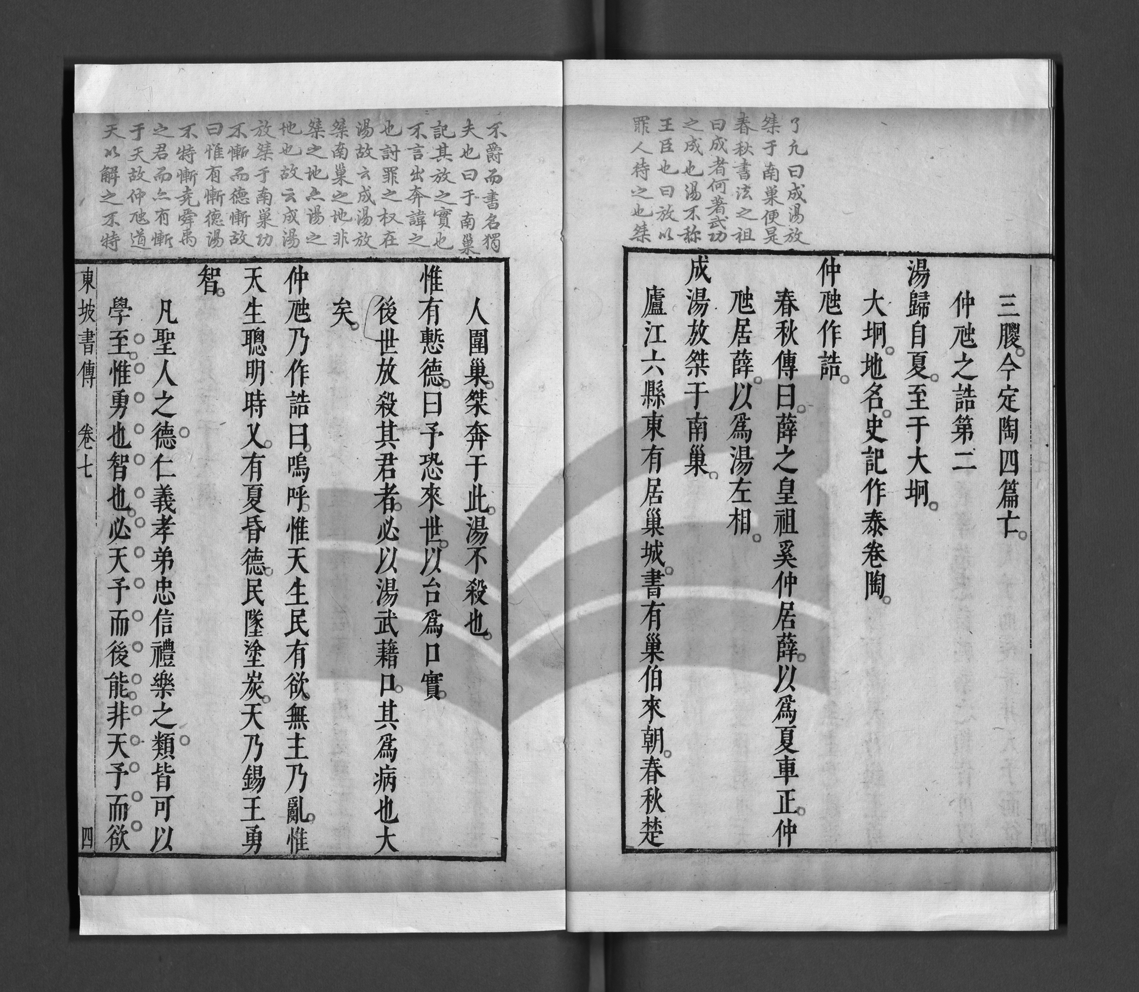 了凡曰成湯放
桀于南巢便是
春秋書法之祖
曰成者何著武功
之成也湯不称
王臣也曰放以
罪人待之也桀
三朡今定陶四篇亡
仲虺之誥第二
湯歸自夏至于大坰
大坰地名史記作泰卷陶
仲虺作誥
春秋傳曰薛之皇祖奚仲居薛以爲夏車正仲
虺居薛以爲湯左相
成湯放桀于南巢
廬江六縣東有居巢城書有巢伯來朝春秋楚
不爵而書名獨
夫也曰于南巢
記其放之實也
不言出奔諱之
也討罪之权在
湯故云成湯放
桀南巢之地非
桀之地亦湯之
地也故云成湯
放桀于南巢功
不慚而德慚故
曰惟有慚德湯
不特慚堯舜禹
之君而亦有慚
于天故仲虺道
天以解之不特
人圍巢桀奔于此湯不殺也
惟有慙德曰予恐來世以台爲口實
後世放殺其君者必以湯武藉口其爲病也大
矣
仲虺乃作誥曰嗚呼惟天生民有欲無主乃亂惟
天生聰明時乂有夏昏德民墜塗炭天乃錫王勇
智
凡聖人之德仁義孝弟忠信禮樂之類皆可以
學至惟勇也智也必天予而後能非天予而欲
東坡書傳 卷七 四